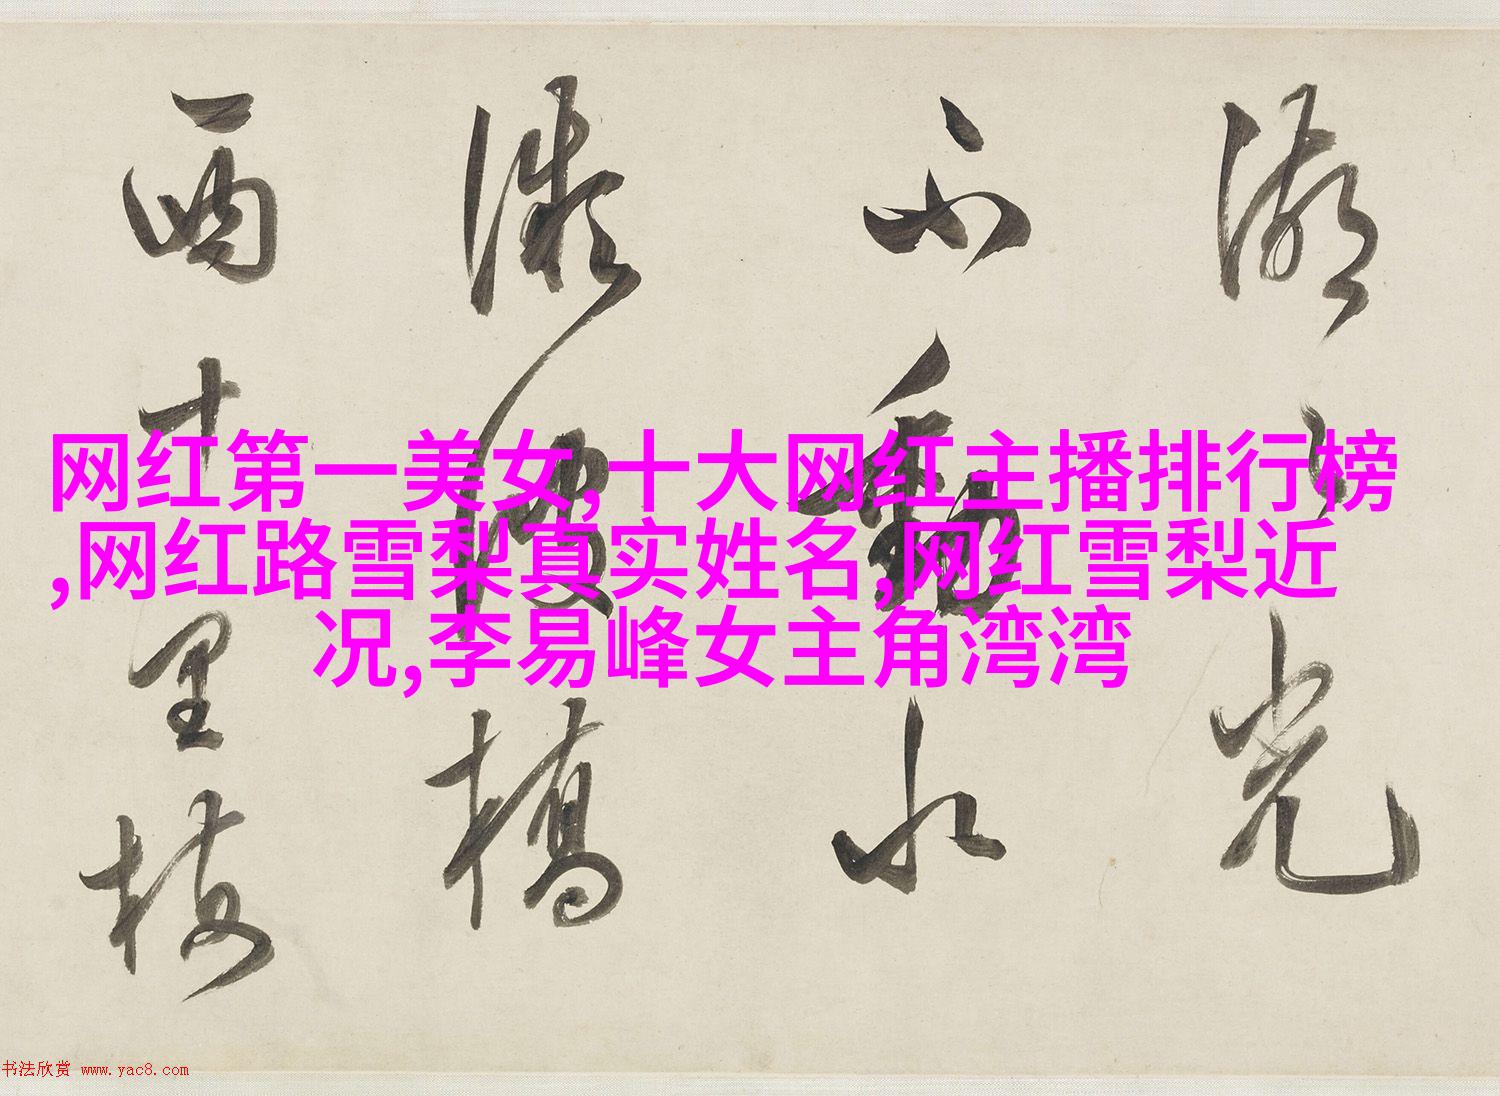 湖光
不動水
微波橋
西十里梅
网红第一美女,十大网红主播排行榜
,网红路雪梨真实姓名,网红雪梨近
况,李易峰女主角湾湾
书法欣赏 www.yac8.com